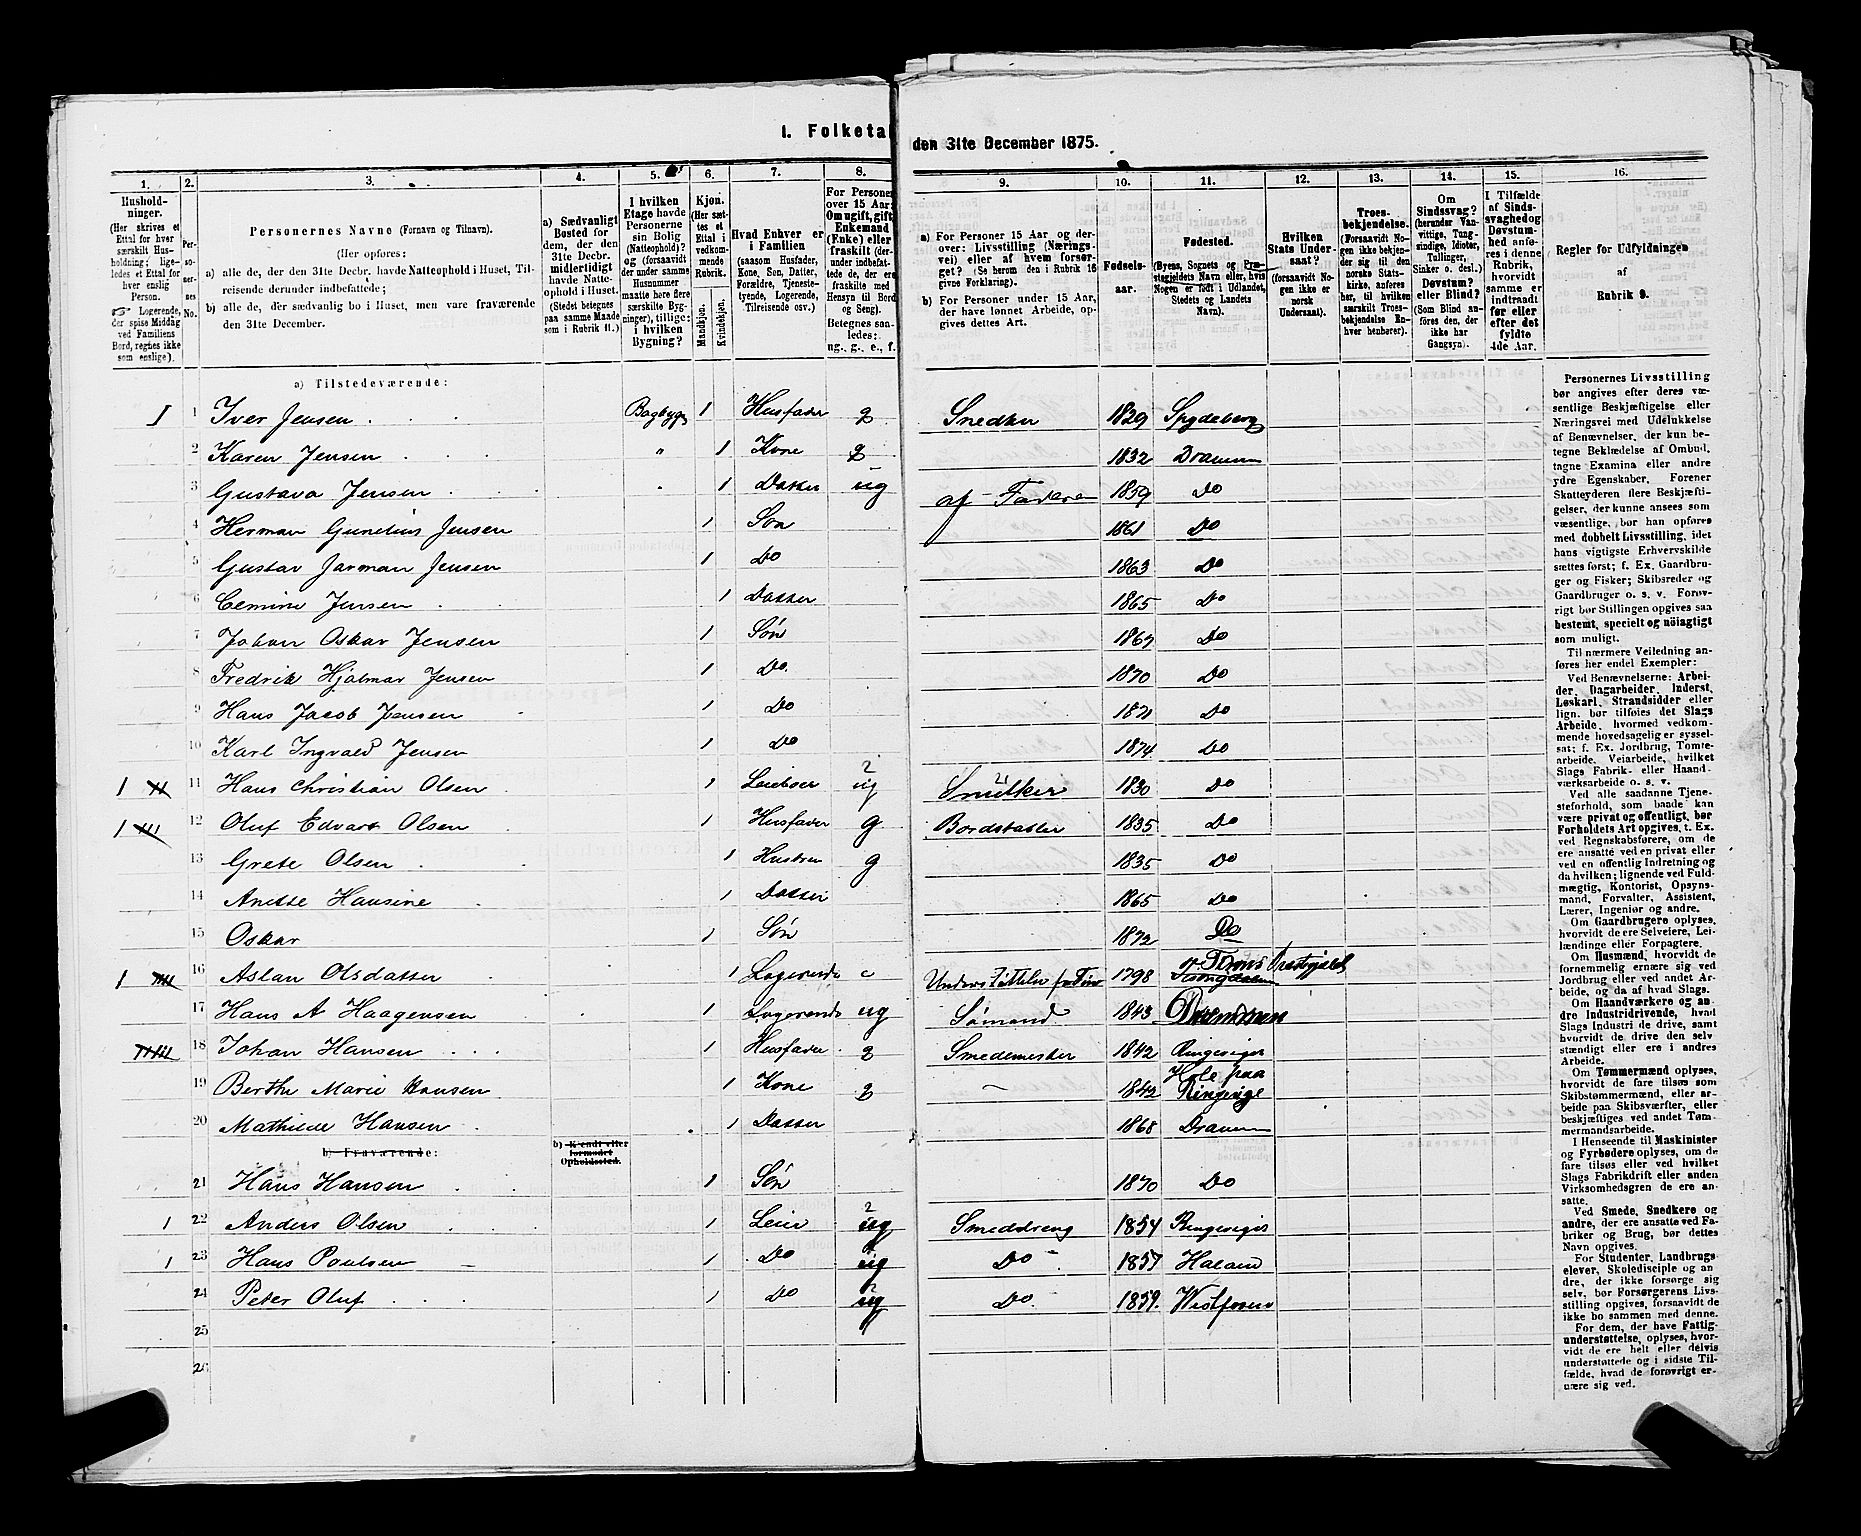 I. Folketal den 31te December 1875.
1. 2. 3. 4. 5. 6. 7. 8. 9. 10. 11. 12. 13. 14. 15. 16.
Husholdninger.
(Her skrives et
Ettal for hver
særskilt Husholdning;
ligeledes et Ettal for
hver enslig
Person.
☞ Logerende,
der spise Middag
ved Familiens
Bord, regnes ikke
som enslige).
Personernes No.
Personernes Navne (Fornavn og Tilnavn).
(Her opføres:
a) alle de, der den 31te Decbr. havde Natteophold i Huset, Tilreisende derunder indbefattede;
b) alle de, der sædvanlig bo i Huset, men vare fraværende
den 31te December.
a) Sædvanligt
Bosted for
dem, der den
31te Decbr.
midlertidigt
havde Natteophold
i Huset.
(Stedet betegnes
paa samme Maade
som i Rubrik 11.)
I hvilken
Etage havde
Personerne
sin Bolig
(Natteophold)?
og (forsaavidt
der under samme
Husnummer
maatte høre flere
særskilte Bygninger),
tillige:
i hvilken
Bygning?
Kjøn.
(Her sættes
et Ettal i
vedkommende
Rubrik.
Mandkjøn.
Kvindekjøn.
Hvad Enhver er
i Familien
(saasom Husfader,
Kone, Søn, Datter,
Forældre, Tjenestetyende,
Logerende,
Tilreisende osv.)
For Personer
over 15 Aar:
Om ugift, gift,
Enkemand
(Enke) eller
fraskilt
Betegnes saaledes:
ug., g., e., f.
a) For Personer 15 Aar og derover:
Livsstilling (Næringsvei)
eller af hvem forsørget?
(Se herom den i Rubrik 16
givne Forklaring).
b) For Personer under 15 Aar,
der have lønnet Arbeide, opgives
dettes Art.
Fødselsaar.
Fødested.
(Byens, Sognets og Præstegjeldets
Navn eller, hvis
Nogen er født i Udlandet,
Stedets og Landets
Navn).
Hvilken
Stats Undersaat?
(forsaavidt Nogen
ikke er
norsk
Undersaat).
Troesbekjendelse.
(Forsaavidt Nogen
ikke bekjender
sig til den
norske Statskirke,
anføres
her, til hvilken
særskilt Troesbekjendelse
Enhver
henhører).
Om
Sindssvag?
(herunder Vanvittige,
Tungsindige,
Idioter,
Tullinger,
Sinker o. desl.)
Døvstum?
eller Blind?
(Som Blind anføres
den, der
ikke har
Gangsyn).
I Tilfælde
af Sindssvaghed
og
Døvstumhed
anføres
i denne
Rubrik,
hvorvidt
samme er
indtraadt
før eller
efter det
fyldte
4de Aar.
Regler for Udfyldningen
af
Rubrik 9.
a) Tilstedeværende:
I 1 Iver Jensen Bagbyg 1 Husfader g Snedker 1829 Spydeberg
2 Karen Jensen " 1 Kone g 1832 Dramm
3 Gustava Jensen " 1 Datter ug af Faderen 1859 Do
4 Herman Gunelius Jensen 1 Søn 1861 Do
5 Gustav Jarman Jensen 1 Do 1863 Do
6 Cemine Jensen 1 Datter 1865 Do
7 Johan Oskar Jensen 1 Søn 1867 Do
8 Fredrik Hjalmar Jensen 1 Do 1870 Do
9 Hans Jacob Jensen 1 Do 1871 Do
10 Karl Ingvald Jensen 1 Do 1874 Do
1 11 Hans Christian Olsen 1 Leieboer ug Snedker 1830 Do
1 12 Oluf Edvart Olsen 1 Husfader g Bordstabler 1835 Do
13 Grete Olsen 1 Hustru g 1835 Do
14 Anette Hansine 1 Datter 1865 Do
15 Oskar 1 Søn 1872 Do
1 16 Aslau Olsdatter 1 Logerende 1798 Præstgjeld
17 Hans A Haagensen 1 Logerende ug Sømand 1843 Drammen
18 Johan Hansen 1 Husfader g Smedemester 1842 Ringeriget
19 Berthe Marie Hansen 1 Kone g 1842 Hole paa Ringerige
20 Mathilde Hansen 1 Datter 1868 Dramm
b) Fraværende: b) Kjendt eller
formodet
Opholdssted.
21 Hans Hansen 1 Søn 1870 Do
1 22 Anders Olsen 1 Leier ug Smeddreng 1854 Ringeriget
1 23 Hans Poulsen 1 Do ug Do 1857 Haland
24 Peter Oluf 1 Do ug Do 1859. Vestfossen
25
26
Personernes Livsstilling
bør angives efter deres væsentlige
Beskjæftigelse eller
Næringsvei med Udelukkelse
af Benævnelser, der kun betegne
Beklædelse af Ombud,
tagne Examina eller andre
ydre Egenskaber. Forener
Skatteyderen flere Beskjæftigelser,
der kunne ansees som
væsentlige, bør han opføres
med dobbelt Livsstilling, idet
hans vigtigste Erhvervskilde
sættes først; f. Ex. Gaardbruger
og Fisker; Skibsreder og
Gaardbruger o. s. v. Forøvrigt
bør Stillingen opgives saa
bestemt, specielt og nöiagtigt
som muligt.
Til nærmere Veiledning anføres
her endel Exempler:
Ved Benævnelserne: Arbeider,
Dagarbeider, Inderst,
Løskarl, Strandsidder eller
lign. bør tilføies det Slags
Arbeide, hvormed vedkommende
hovedsagelig er sysselsat;
f. Ex. Jordbrug, Tomtearbeide,
Veiarbeide, hvilket
Slags Fabrik- eller Haandværksarbeide
o. s. v.
Ved alle saadanne Tjenesteforhold,
som baade kan
være privat og offentligt, bør
Forholdets Art opgives, t. Ex.
ved Regnskabsførere, om de
ere ansatte ved en privat eller
en offentlig Indretning og
da hvilken; lignende ved Fuldmægtig,
Kontorist, Opsynsmand,
Forvalter, Assistent,
Lærer, Ingeniør og andre.
Om Gaardbrugere oplyses,
hvorvidt de ere Selveiere, Leilændinge
eller Forpagtere.
Om Husmænd, hvorvidt de
fornemmelig ernære sig ved
Jordbrug eller ved andet Arbeide,
og da af hvad Slags.
Om Haandværkere og andre
Industridrivende, hvad
Slags Industri de drive, samt
hvorvidt de drive den selvstændigt
eller ere i andres
Arbeide.
Om Tømmermænd oplyses,
hvorvidt de fare tilsøs som
Skibstømmermænd, eller arbeide
paa Skibsværfter, eller
beskjæftiges ved andet Tømmermandsarbeide.
I Henseende til Maskinister
og Fyrbødere oplyses, om de
fare tilsøs eller ved hvilket
Slags Fabrikdrift eller anden
Virksomhed de ere ansatte.
Ved Smede, Snedkere og
andre, der ere ansatte ved Fabriker
og Brug, bør dettes
Navn opgives.
For Studenter, Landbrugselever,
Skoledisciple og andre,
der ikke forsørge sig
selv, bør Forsørgerens Livsstilling
opgives, forsaavidt de
ikke bo sammen med denne.
For dem, der have Fattigunderstøttelse,
oplyses, hvorvidt
de ere helt eller delvis
understøttede og i sidste Tilfælde,
hvad de forøvrigt ernære
sig ved.